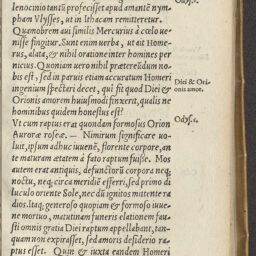 Odyss.
lenocinio tantū profecisset apud amantē nym-
pham Vlysses, ut in Ithacam remitteretur.
Quamobrem aut similis Mercurius à cœlo ue-
nisse fingitur. Sunt enim uerba, ut ait Home-
rus, alata, & nihil oratione inter homines per
nicius. Quoniam uero nihil prætereūdum no-
bis est, sed in paruis etiam accuratum Homeri
ingenium spectari decet, qui fit quod Diei &
Orionis amorem huiusmodi finxerit, qualis ne
hominibus quidem honestus est?
Diei & Ori-
onis amor.
Odys. ε.
Vt cum raptus erat quondam formosus Orion
Auroræ roseæ. — Nimirum significare uo-
luit, ipsum adhuc iuuenē, florente corpore, an
te maturam ætatem à fato raptum fuisse. Mos
autem erat antiquis, defunctorū corpora neq;
noctu, neq; circa meridiē efferri, sed primo di
luculo oriente Sole, nec dū ignitos mittente ra
dios. Itaq; generoso quopiam & formoso iuue-
ne mortuo, matutinam funeris elationem fau-
sti omnis gratia Diei raptum appellabant, tan-
quam non expirasset, sed amoris desiderio ra-
ptus esset. Quin & iuxta eandem Homeri